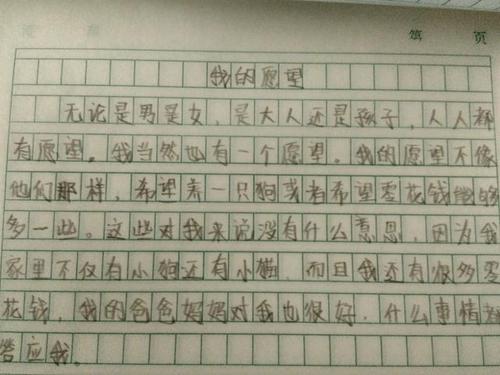 第 页
我的愿望
无论是男是女，是大人还是孩子，人人都
有愿望。我当然也有一个愿望。我的愿望不像
他们那样，希望养一只狗或者希望零花钱能够
多一些。这些对我来说没有什么意思，因为我
家里不仅有小狗还有小猫，而且我还有很多零
花钱，我的爸爸妈妈对我也很好，什么事情都
答应我。